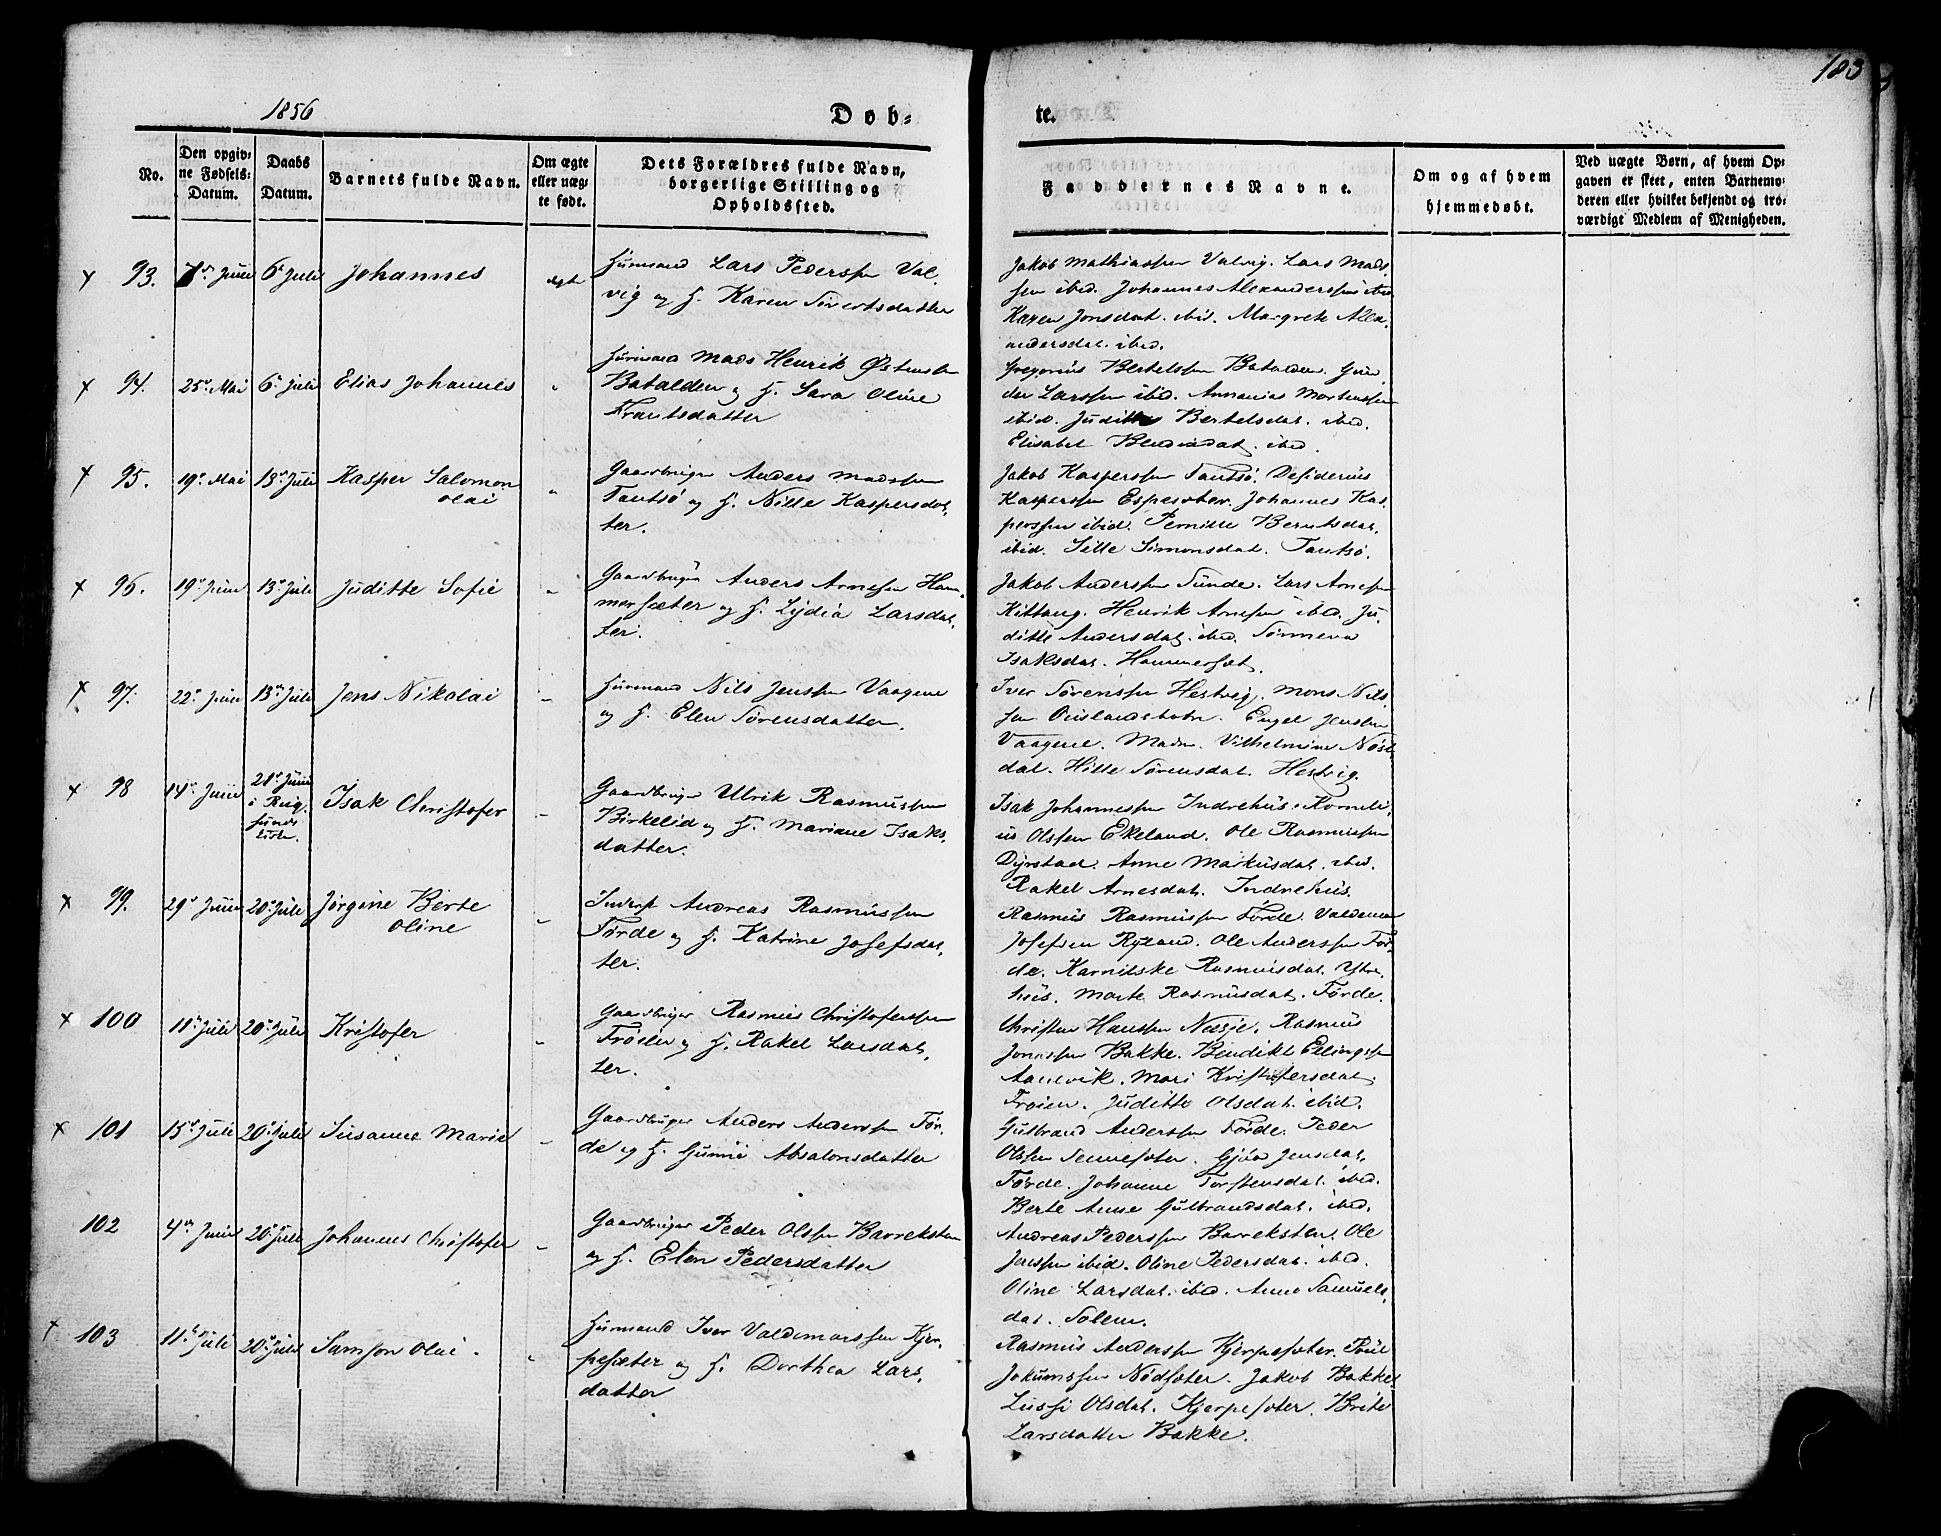 183
1856
Døb-
te.
No.
Den opgiv-
ne Fødsels-
Datum.
Daabs
Datum.
Barnets fulde Navn.
Om ægte
eller uæg-
te født.
Dets Forældres fulde Navn,
borgerlige Stilling og
Opholdssted.
Faddernes Navne.
Om og af hvem
hjemmedøbt.
Ved uægte Børn, af hvem Op-
gaven er skeet, enten Barnemo-
deren eller hvilket bekjendt og tro-
værdigt Medlem af Menigheden.
93. 7de Juni 6te Juli Johannes ægte
Huusmand Lars Pederssen Val-
vig og H. Karen Sivertsdatter
Jakob Mathiassen Valvig. Lars Mads-
sen ibid. Johannes Alexanderssen ibid
Karen Jonsdat. ibid. Margrete Alex-
andersdat. ibid.
94. 25de Mai 6te Juli Elias Johannes "
Huusmand Mads Henrik Østenssen
Batalden og H. Sara Oline
Frantsdatter
Gregorius Bertelssen Batalden.
Larssen ibid. Annanias Mortenssen
ibid. Juditte Bertelsdat. ibid.
Elisabet Bendixdat. ibid.
95. 19de Mai 13de Juli Kasper Salomon
Olai "
Gaardbruger Anders Madssen
Tautsø og H. Nille Kaspersdat-
ter.
Jakob Kasperssen Tautsø. Desiderius
Kasperssen Espesæter. Johannes Kas-
perssen ibid. Pernille Berntsdat.
ibid. Sille Simonsdat. Tautsø.
96. 19de Juni 13de Juli Juditte Sofie "
Gaardbruger Anders Arnesen Ham-
mersæter og H. Lydia Larsdat-
ter.
Jakob Anderssen Sunde. Lars Arnesen
Kittang. Henrik Arnesen ibid. Ju-
ditte Andersdat. ibid. Sønneva
Isaksdat. Hammerset.
97. 22de Juni 13de Juli Jens Nikolai "
Huusmand Nils Jenssen Vaagene
og H. Elen Sørensdatter.
Iver Sørenssen Hestvig. Mons Nils-
sen Ouslandsbotn. Engel Jenssen
Vaagene. Madm. Vilhelmine Nøst-
dal. Hille Sørensdat. Hestvig.
98 14de Juni 21de Juni
i
sunds
Kirke. Isak Christofer "
Gaardbruger Ulrik Rasmussen
Birkelid og H. Mariane Isaks-
datter.
Isak Johannessen Indrehus. Korneli-
us Olssen Ekeland. Ole Rasmussen
Dyrstad. Anne Markusdat. ibid.
Rakel Arnesdat. Indrehus.
99. 29de Juni 20de Juli Jørgine Berte
Oline "
Inderst Andreas Rasmussen
Førde og H. Katrine Josefsdat-
ter.
Rasmus Rasmussen Førde. Valdemar
Josefsen Ryland. Ole Anderssen Før-
de. Karnilske Rasmusdat. Ytre-
hus. Marte Rasmusdat. Førde.
100 11te Juli 20de Juli Kristofer "
Gaardbruger Rasmus Christoferssen
Frøien og H. Rakel Larsdat-
ter.
Christen Hanssen Nesje. Rasmus
Jonassen Bakke. Bendikt Ellingssen
Aanevik. Mari Kristofersdat.
Frøien. Juditte Olsdat. ibid.
101 15de Juli 20de Juli Susanne Marie "
Gaardbruger Anders Anderssen Før-
de og H. Absalonsdatter
Gulbrand Anderssen Førde. Peder
Olssen Sennesæter. Jensdat.
Førde. Johanne Torstensdat. ibid.
Berte Anne Gulbrandsdat. ibid.
102 4de Juni 20de Juli Johannes Christofer "
Gaardbruger Peder Olssen Barreksten
og H. Elen Pedersdatter
Andreas Pederssen Barreksten. Ole
Jenssen ibid. Oline Pedersdat. ibid.
Oline Larsdat. ibid. Anne Samuels-
dat. Solem.
103 11te Juli 20de Juli Samson Olai. "
Huusmand Iver Valdemarssen Kjer-
pesæter og H. Dorthea Lars-
datter
Rasmus Anderssen Kjerpesæter. Poul
Jokumssen Nødsæter. Jakob Bakke
Lussi Olsdat. Kjerpesæter. Brite
Larsdatter Bakke.